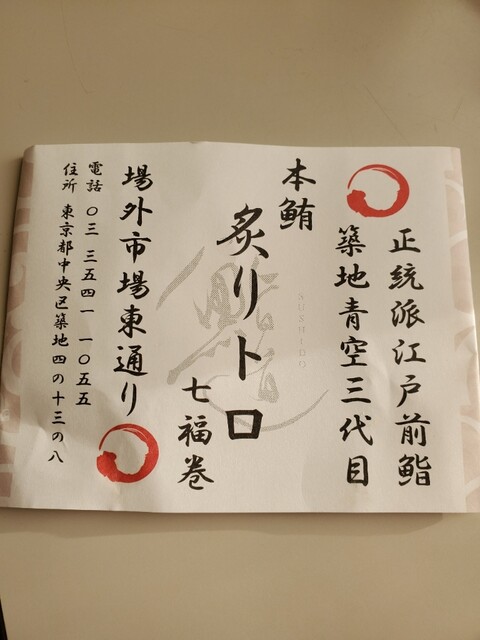 正統派江戸前鮨
築地青空三代目
本鮪
炙りトロ
七福巻
場外市場東通り
電話 〇三 三五四一 一〇五五
住所 東京都中央区築地四の十三の八
SUSHIDO
鮨道